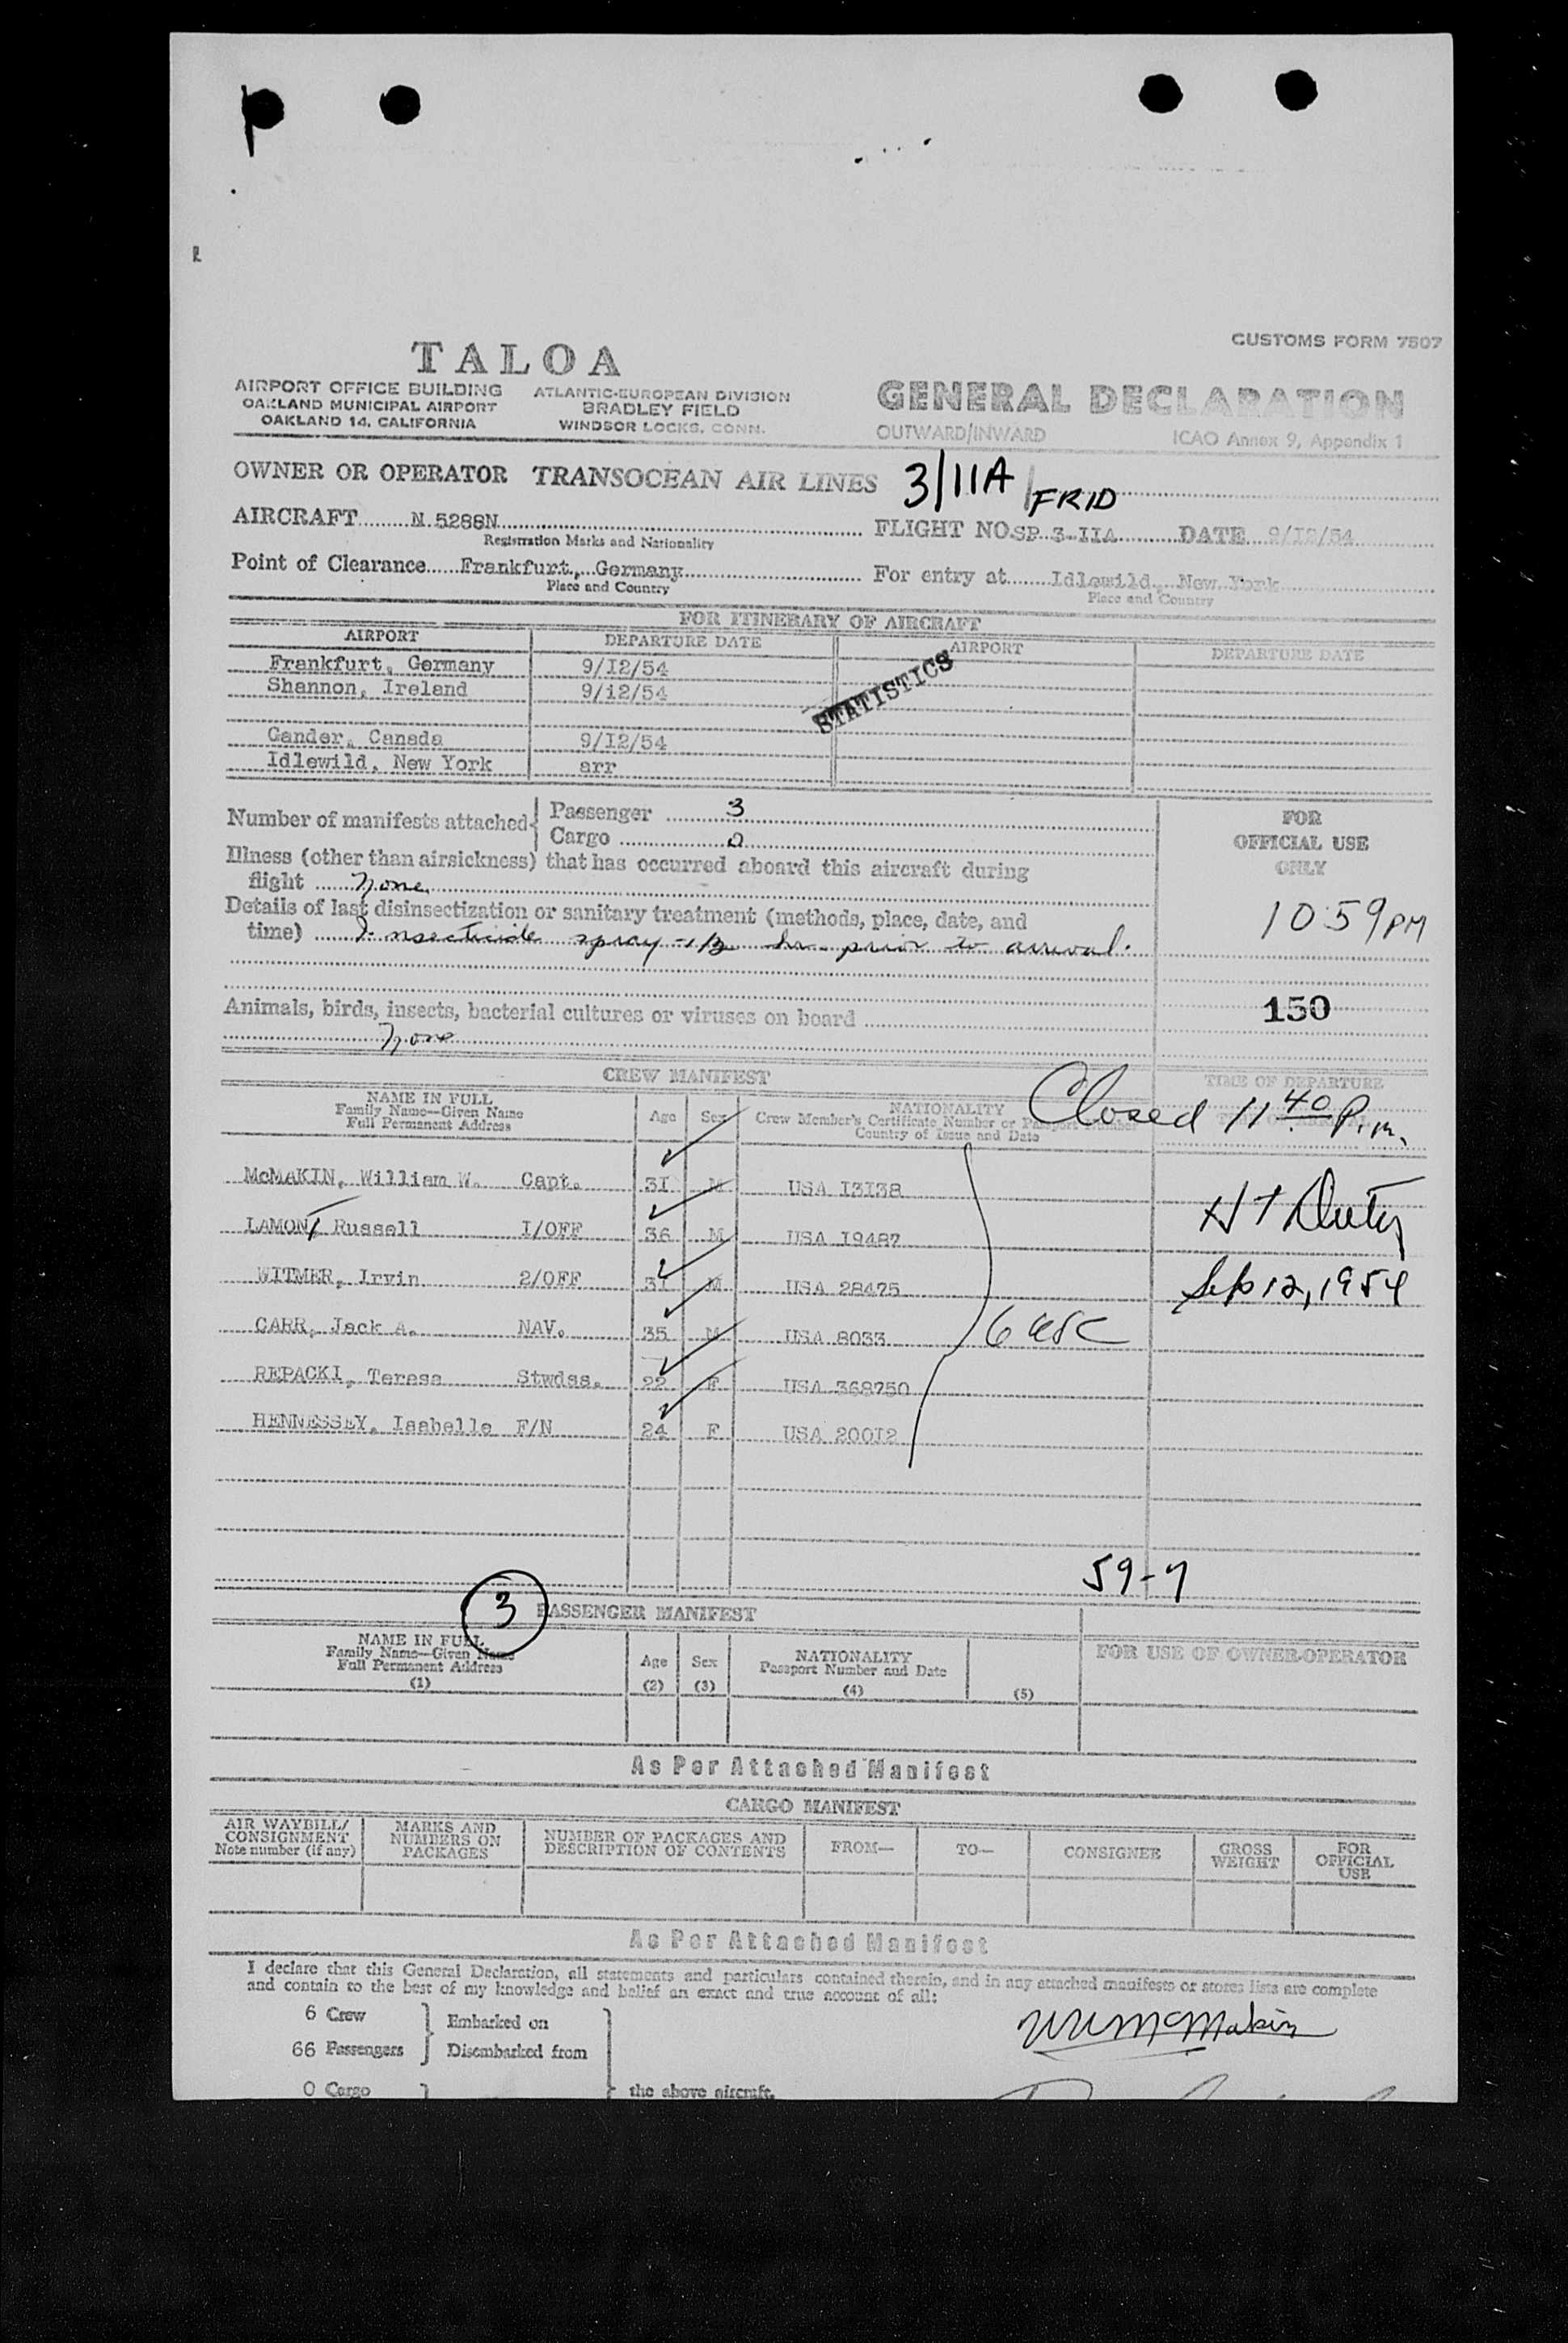 CUSTOMS FORM 7507
TALOA
AIRPORT OFFICE BUILDING
OAKLAND MUNICIPAL AIRPORT
OAKLAND 14, CALIFORNIA
ATLANTIC-EUROPEAN DIVISION
BRADLEY FIELD
WINDSOR LOCKS, CONN.
GENERAL DECLARATION
OUTWARD/INWARD ICAO Annex 9, Appendix 1
OWNER OR OPERATOR TRANSOCEAN AIR LINES 3/11A/FRID
AIRCRAFT N 5288N FLIGHT NO. SP 3-IIA DATE 9/I2/54
Registration Marks and Nationality
Point of Clearance Frankfurt, Germany For entry at Idlewild, New York
Place and Country Place and Country
FOR ITINERARY OF AIRCRAFT
AIRPORT DEPARTURE DATE AIRPORT DEPARTURE DATE
Frankfurt, Germany 9/I2/54
Shannon, Ireland 9/12/54
STATISTICS
Gander, Canada 9/I2/54
Idlewild, New York arr
Number of manifests attached { Passenger 3
Cargo 0
FOR
OFFICIAL USE
ONLY
Illness (other than airsickness) that has occurred aboard this aircraft during
flight None
Details of last disinsectization or sanitary treatment (methods, place, date, and
time) Insecticide spray - 1/2 hr prior to arrival.
10 59 PM
150
Animals, birds, insects, bacterial cultures or viruses on board
None
CREW MANIFEST
TIME OF DEPARTURE
NAME IN FULL
Family Name—Given Name
Full Permanent Address
Age Sex
NATIONALITY
Crew Member's Certificate Number or Passport Number
Country of Issue and Date
Closed 11 40 P.m.
McMAKIN, William W. Capt. 3I M USA I3I38
LAMONT Russell I/OFF 36 M USA I9487
WITMER, Irvin 2/OFF 3I M USA 28475
Sep 12, 1954
CARR, Jack A. NAV. 35 M USA 8033
6 USC
REPACKI, Teresa Stwdss. 22 F USA 368750
HENNESSEY, Isabelle F/N 24 F USA 200I2
59-7
3
PASSENGER MANIFEST
NAME IN FULL
Family Name—Given Name
Full Permanent Address
(1)
Age
(2)
Sex
(3)
NATIONALITY
Passport Number and Date
(4)
(5)
FOR USE OF OWNER-OPERATOR
As Per Attached Manifest
CARGO MANIFEST
AIR WAYBILL/
CONSIGNMENT
Note number (if any)
MARKS AND
NUMBERS ON
PACKAGES
NUMBER OF PACKAGES AND
DESCRIPTION OF CONTENTS
FROM—
TO—
CONSIGNEE
GROSS
WEIGHT
FOR
OFFICIAL
USE
As Per Attached Manifest
I declare that this General Declaration, all statements and particulars contained therein, and in any attached manifests or stores lists are complete
and contain to the best of my knowledge and belief an exact and true account of all:
6 Crew } Embarked on
66 Passengers } Disembarked from
WWMcMakin
0 Cargo } the above aircraft.